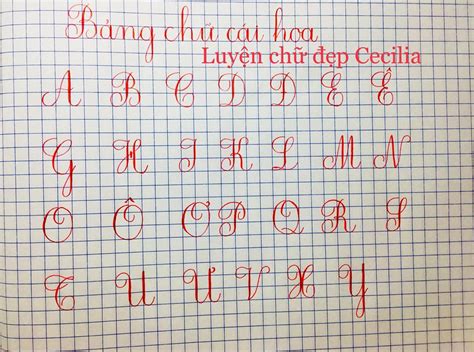 Bảng chữ cái hoa
Luyện chữ đẹp Cecilia
A B C D Đ E Ê
G H I K L M N
O Ô Ơ P Q R S
T U Ư V X Y